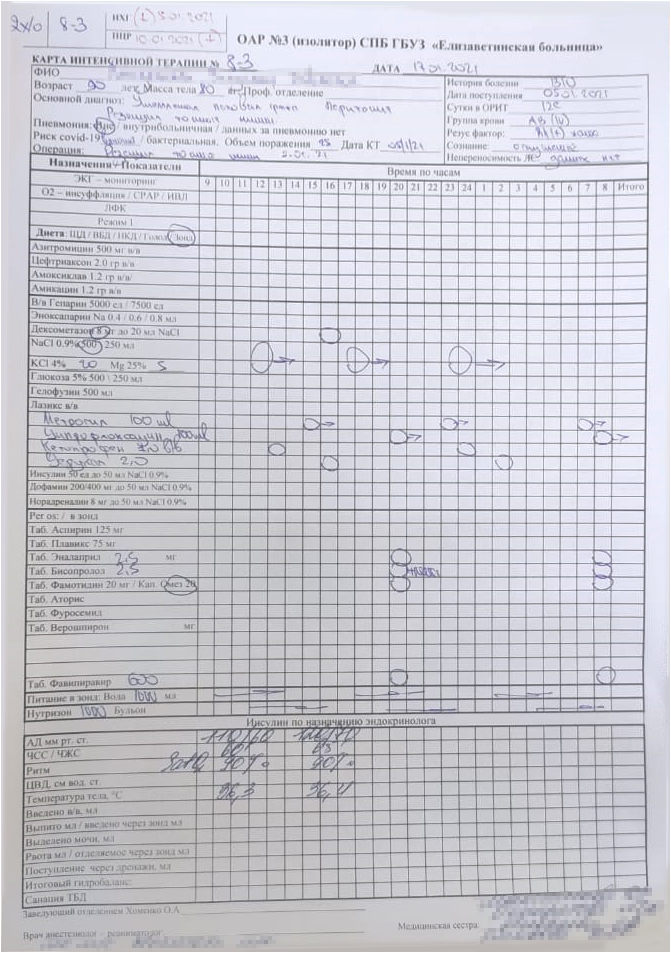 2х/о 8-3
ИХГ (-) 5.01.2021
ПЦР 10.01.2021 (+)
ОАР №3 (изолятор) СПБ ГБУЗ «Елизаветинская больница»
КАРТА ИНТЕНСИВНОЙ ТЕРАПИИ № 8-3 ДАТА 17.01.2021
ФИО
История болезни 1310
Возраст 90 лет Масса тела 80 кг Проф. отделение
Дата поступления 05.01.2021
Основной диагноз: Ущемленная паховая грыжа Перитонит
Сутки в ОРИТ 12с
Резекция тонкой кишки
Группа крови AB (IV)
Пневмония: Вно / внутрибольничная / данных за пневмонию нет
Резус фактор: Rh(+)
Риск covid-19 / бактериальная. Объем поражения 25 Дата КТ
Сознание: оглушение
Операция: Резекция тонкой кишки 5.01.21
Непереносимость ЛС данных нет
Назначения Показатели Время по часам
ЭКГ – мониторинг 9 10 11 12 13 14 15 16 17 18 19 20 21 22 23 24 1 2 3 4 5 6 7 8 Итого
О2 – инсуффляция / СРАР / ИВЛ
ЛФК
Режим 1
Диета: ЩД / ВБД / НКД / Голод / Зонд
Азитромицин 500 мг в/в
Цефтриаксон 2.0 гр в/в
Амоксиклав 1.2 гр в/в
Амикацин 1.2 гр в/в
В/в Гепарин 5000 ед / 7500 ед
Эноксапарин Na 0.4 / 0.6 / 0.8 мл
Дексометазон 8 мг до 20 мл NaCl
NaCl 0.9% 500 \ 250 мл
KCl 4% 20 Mg 25% 5
Глюкоза 5% 500 \ 250 мл
Гелофузин 500 мл
Лазикс в/в
Метрогил 100 ml
Ципрофлоксацин 200ml
Кетопрофен 2,0 в/в
Церукал 2,0
Инсулин 50 ед до 50 мл NaCl 0.9%
Дофамин 200/400 мг до 50 мл NaCl 0.9%
Норадреналин 8 мг до 50 мл NaCl 0.9%
Per os: / в зонд
Таб. Аспирин 125 мг
Таб. Плавикс 75 мг
Таб. Эналаприл 2,5 мг
Таб. Бисопролол 2,5
Таб. Фамотидин 20 мг / Кап. Омез 20
Таб. Аторис
Таб. Фуросемид
Таб. Верошпирон мг
Таб. Фавипиравир 600
Питание в зонд: Вода 1000 мл
Нутризон 1000 Бульон
Инсулин по назначению эндокринолога
АД мм рт. ст. 110/60 120/70
ЧСС / ЧЖС 60 63
Ритм SatO2 90% 90%
ЦВД, см вод. ст.
Температура тела, °С 36,3 36,4
Введено в/в, мл
Выпито мл / введено через зонд мл
Выделено мочи, мл
Рвота мл / отделяемое через зонд мл
Поступление через дренажи, мл
Итоговый гидробаланс:
Санация ТБД
Заведующий отделением Хоменко О.А
Врач анестезиолог – реаниматолог:
Медицинская сестра: